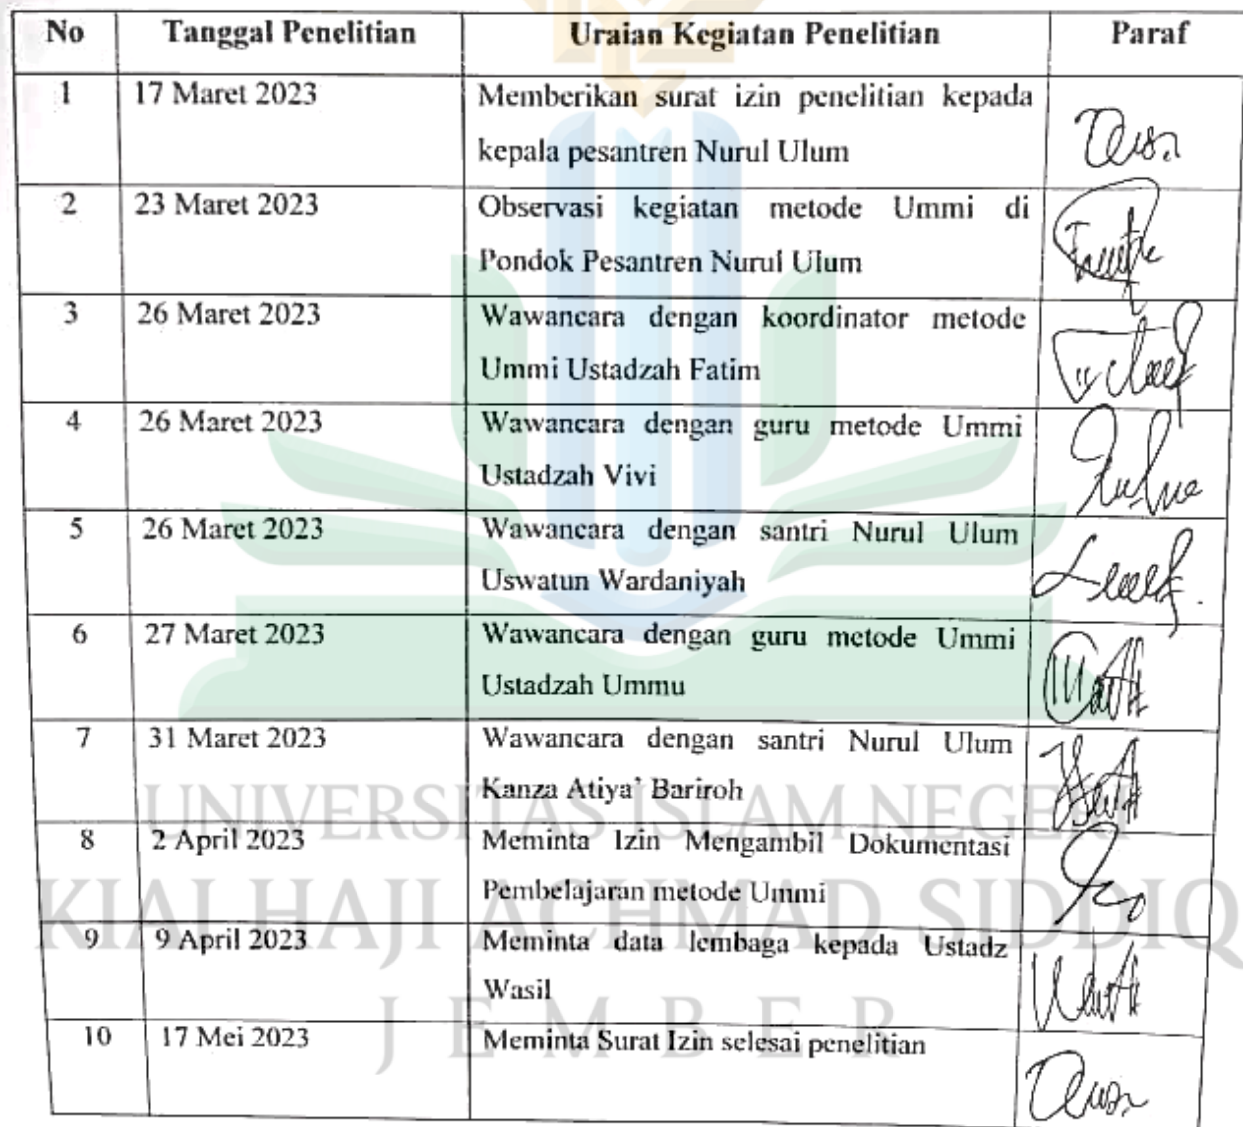 No Tanggal Penelitian Uraian Kegiatan Penelitian Paraf
1 17 Maret 2023 Memberikan surat izin penelitian kepada
kepala pesantren Nurul Ulum
2 23 Maret 2023 Observasi kegiatan metode Ummi di
Pondok Pesantren Nurul Ulum
3 26 Maret 2023 Wawancara dengan koordinator metode
Ummi Ustadzah Fatim
4 26 Maret 2023 Wawancara dengan guru metode Ummi
Ustadzah Vivi
5 26 Maret 2023 Wawancara dengan santri Nurul Ulum
Uswatun Wardaniyah
6 27 Maret 2023 Wawancara dengan guru metode Ummi
Ustadzah Ummu
7 31 Maret 2023 Wawancara dengan santri Nurul Ulum
Kanza Atiya' Bariroh
UNIVERSITAS ISLAM NEGERI
8 2 April 2023 Meminta Izin Mengambil Dokumentasi
Pembelajaran metode Ummi
KIAI HAJI ACHMAD SIDDIQ
9 9 April 2023 Meminta data lembaga kepada Ustadz
Wasil
JEMBER
10 17 Mei 2023 Meminta Surat Izin selesai penelitian